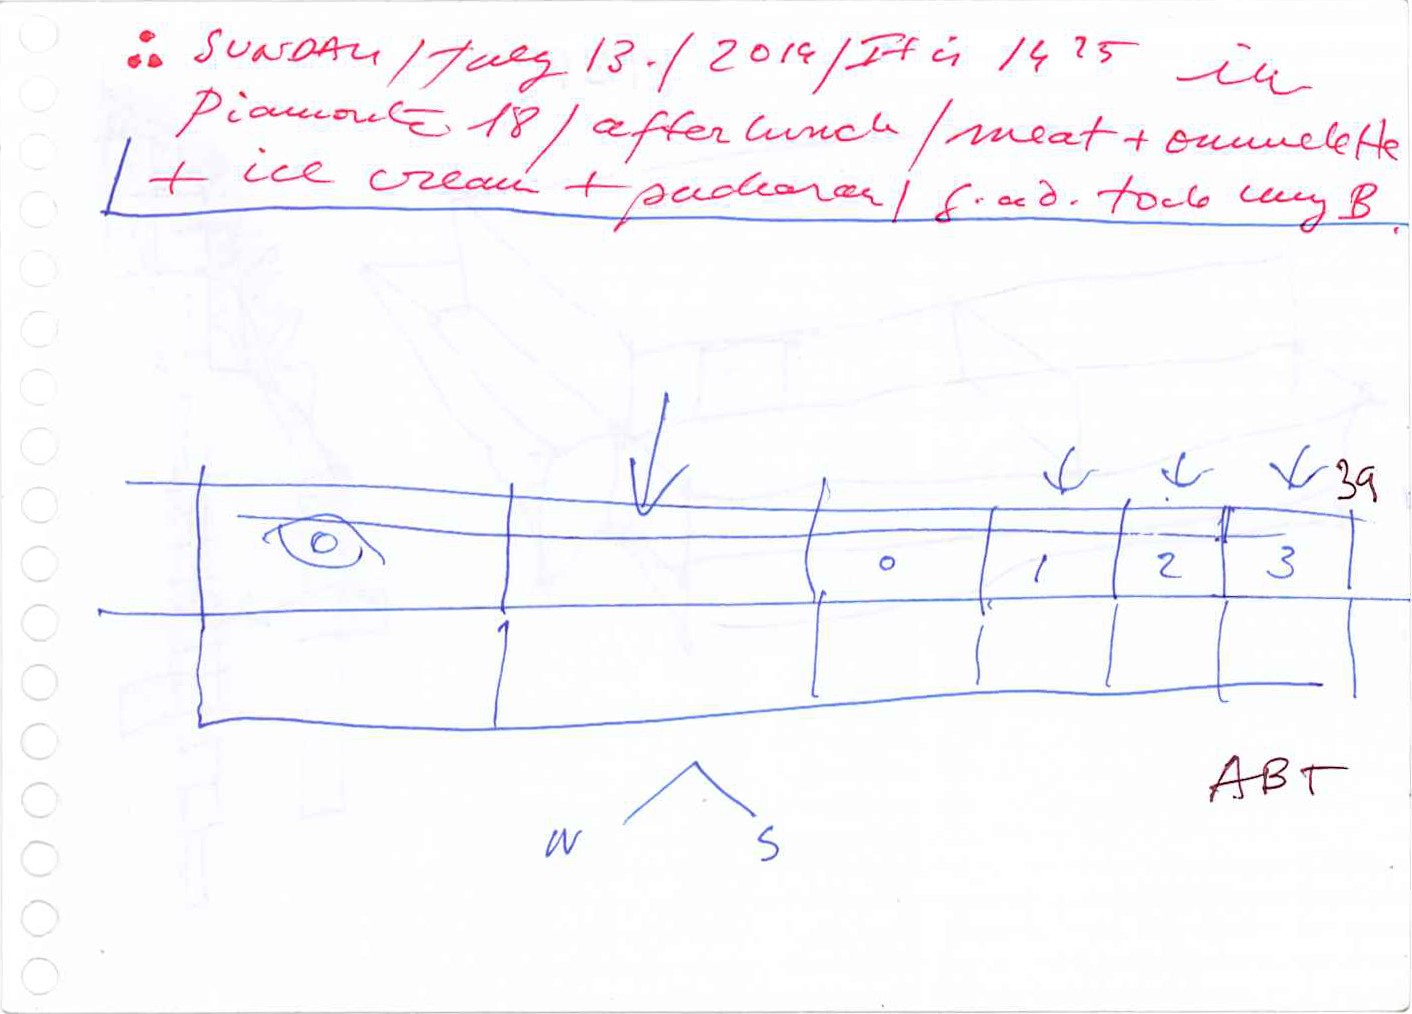 ∴ SUNDAY / July 13. / 2014 / It is 14 25 in
Piamonte 18 / after lunch / meat + ommelette
+ ice cream + pacharan / todo muy B.
39
0 0 1 2 3
ABT
N S